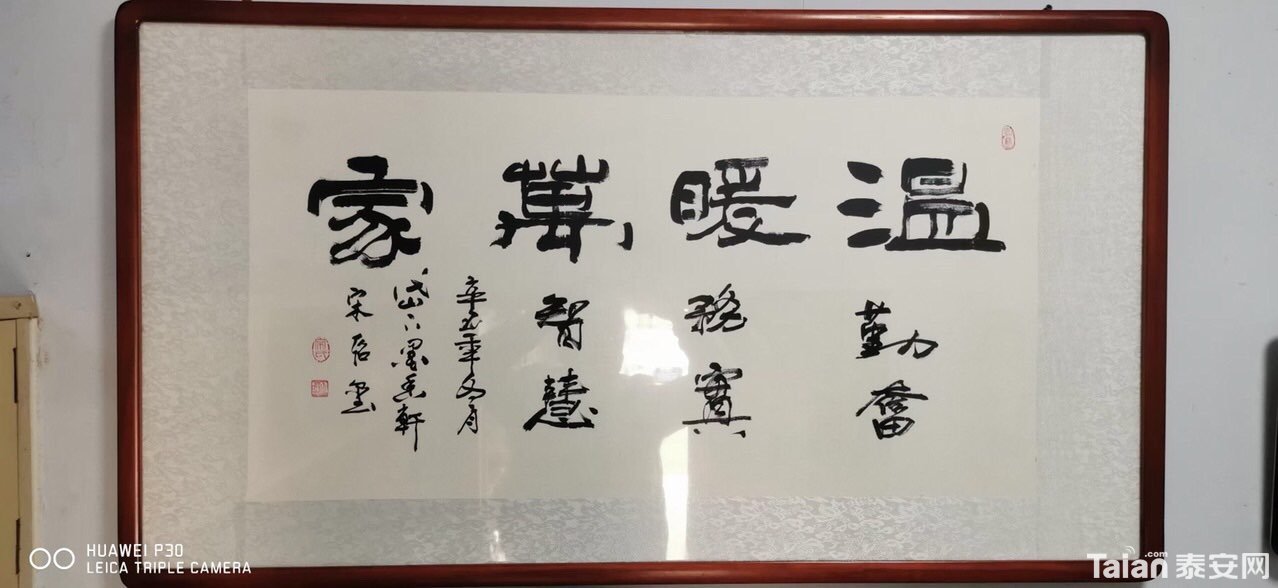 温暖萬家
勤奮
務實
智慧
辛丑年冬月
岱下墨香軒
宋
HUAWEI P30
LEICA TRIPLE CAMERA
Taian.com 泰安网